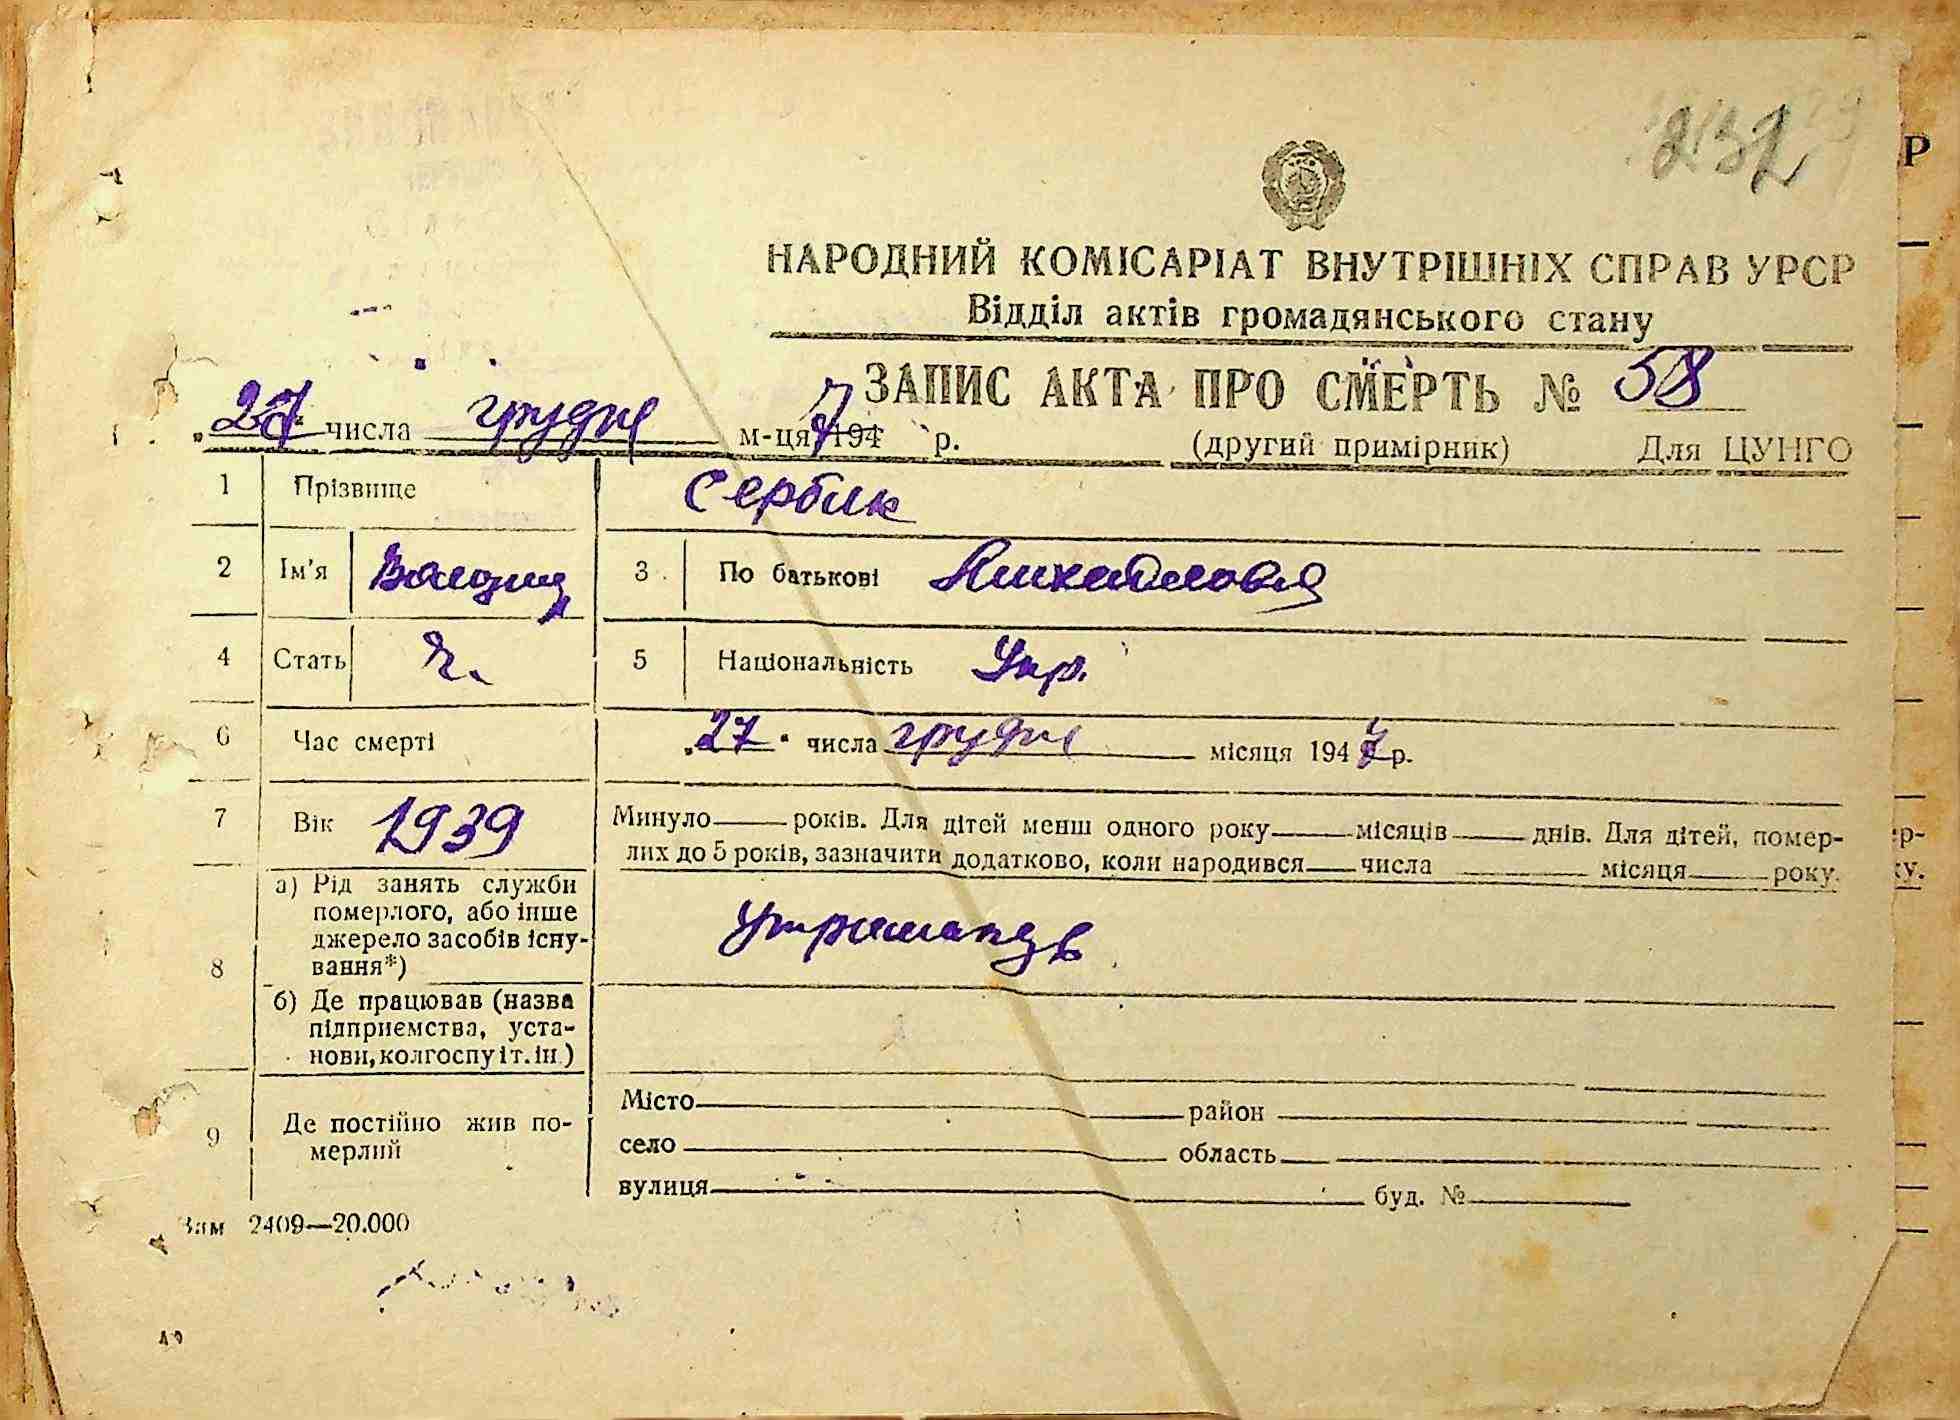 232
Р
НАРОДНИЙ КОМІСАРІАТ ВНУТРІШНІХ СПРАВ УРСР
Відділ актів громадянського стану
ЗАПИС АКТА ПРО СМЕРТЬ № 58
„27" числа грудня м-ця 1947 р. (другий примірник) Для ЦУНГО
1 Прізвище Сербик
2 Ім'я 3 По батькові
4 Стать ч. 5 Національність Укр.
6 Час смерті „27" числа грудня місяця 1947 р.
7 Вік 1939 Минуло — років. Для дітей менш одного року — місяців — днів. Для дітей, помер-
лих до 5 років, зазначити додатково, коли народився — числа — місяця — року.
8 а) Рід занять служби
померлого, або інше
джерело засобів існу-
вання*)
б) Де працював (назва
підприємства, уста-
нови, колгоспу і т. ін.)
9 Де постійно жив по-
мерлий
Місто — район —
село — область —
вулиця — буд. № —
Зам 2409—20.000